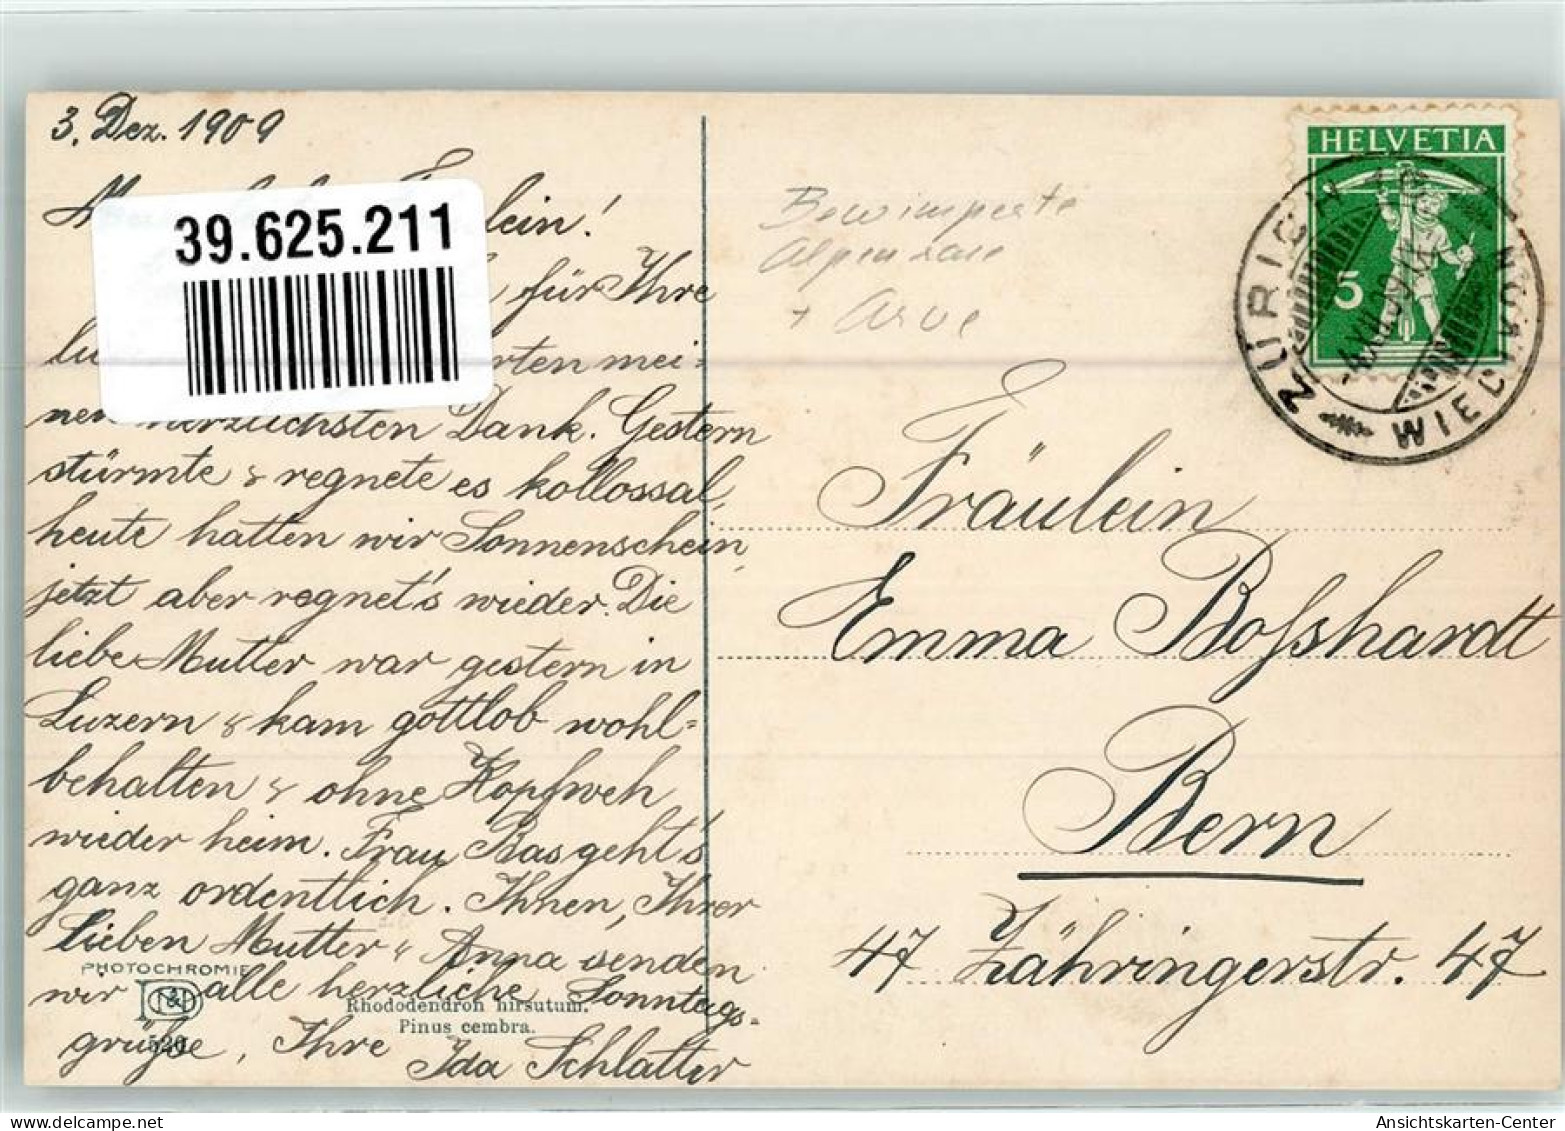 3. Dez. 1909
39.625.211
lein!
für Ihre
rten mei=
nen herzlichsten Dank. Gestern
stürmte & regnete es kollossal,
heute hatten wir Sonnenschein,
jetzt aber regnet's wieder. Die
liebe Mutter war gestern in
Luzern & kam gottlob wohl=
behalten & ohne Kopfweh
wieder heim. Frau Bas geht's
ganz ordentlich. Ihnen, Ihrer
lieben Mutter & Anna senden
wir alle herzliche Sonntags=
grüße, Ihre Ida Schlatter
PHOTOCHROMIE
Rhododendron hirsutum.
Pinus cembra.
Bewimperte
Alpenrose
+ Arve
HELVETIA
5
ZÜRICH
WIEDIKON
Fräulein
Emma Boßhardt
Bern
47 Zähringerstr. 47
delcampe.net
Ansichtskarten-Center